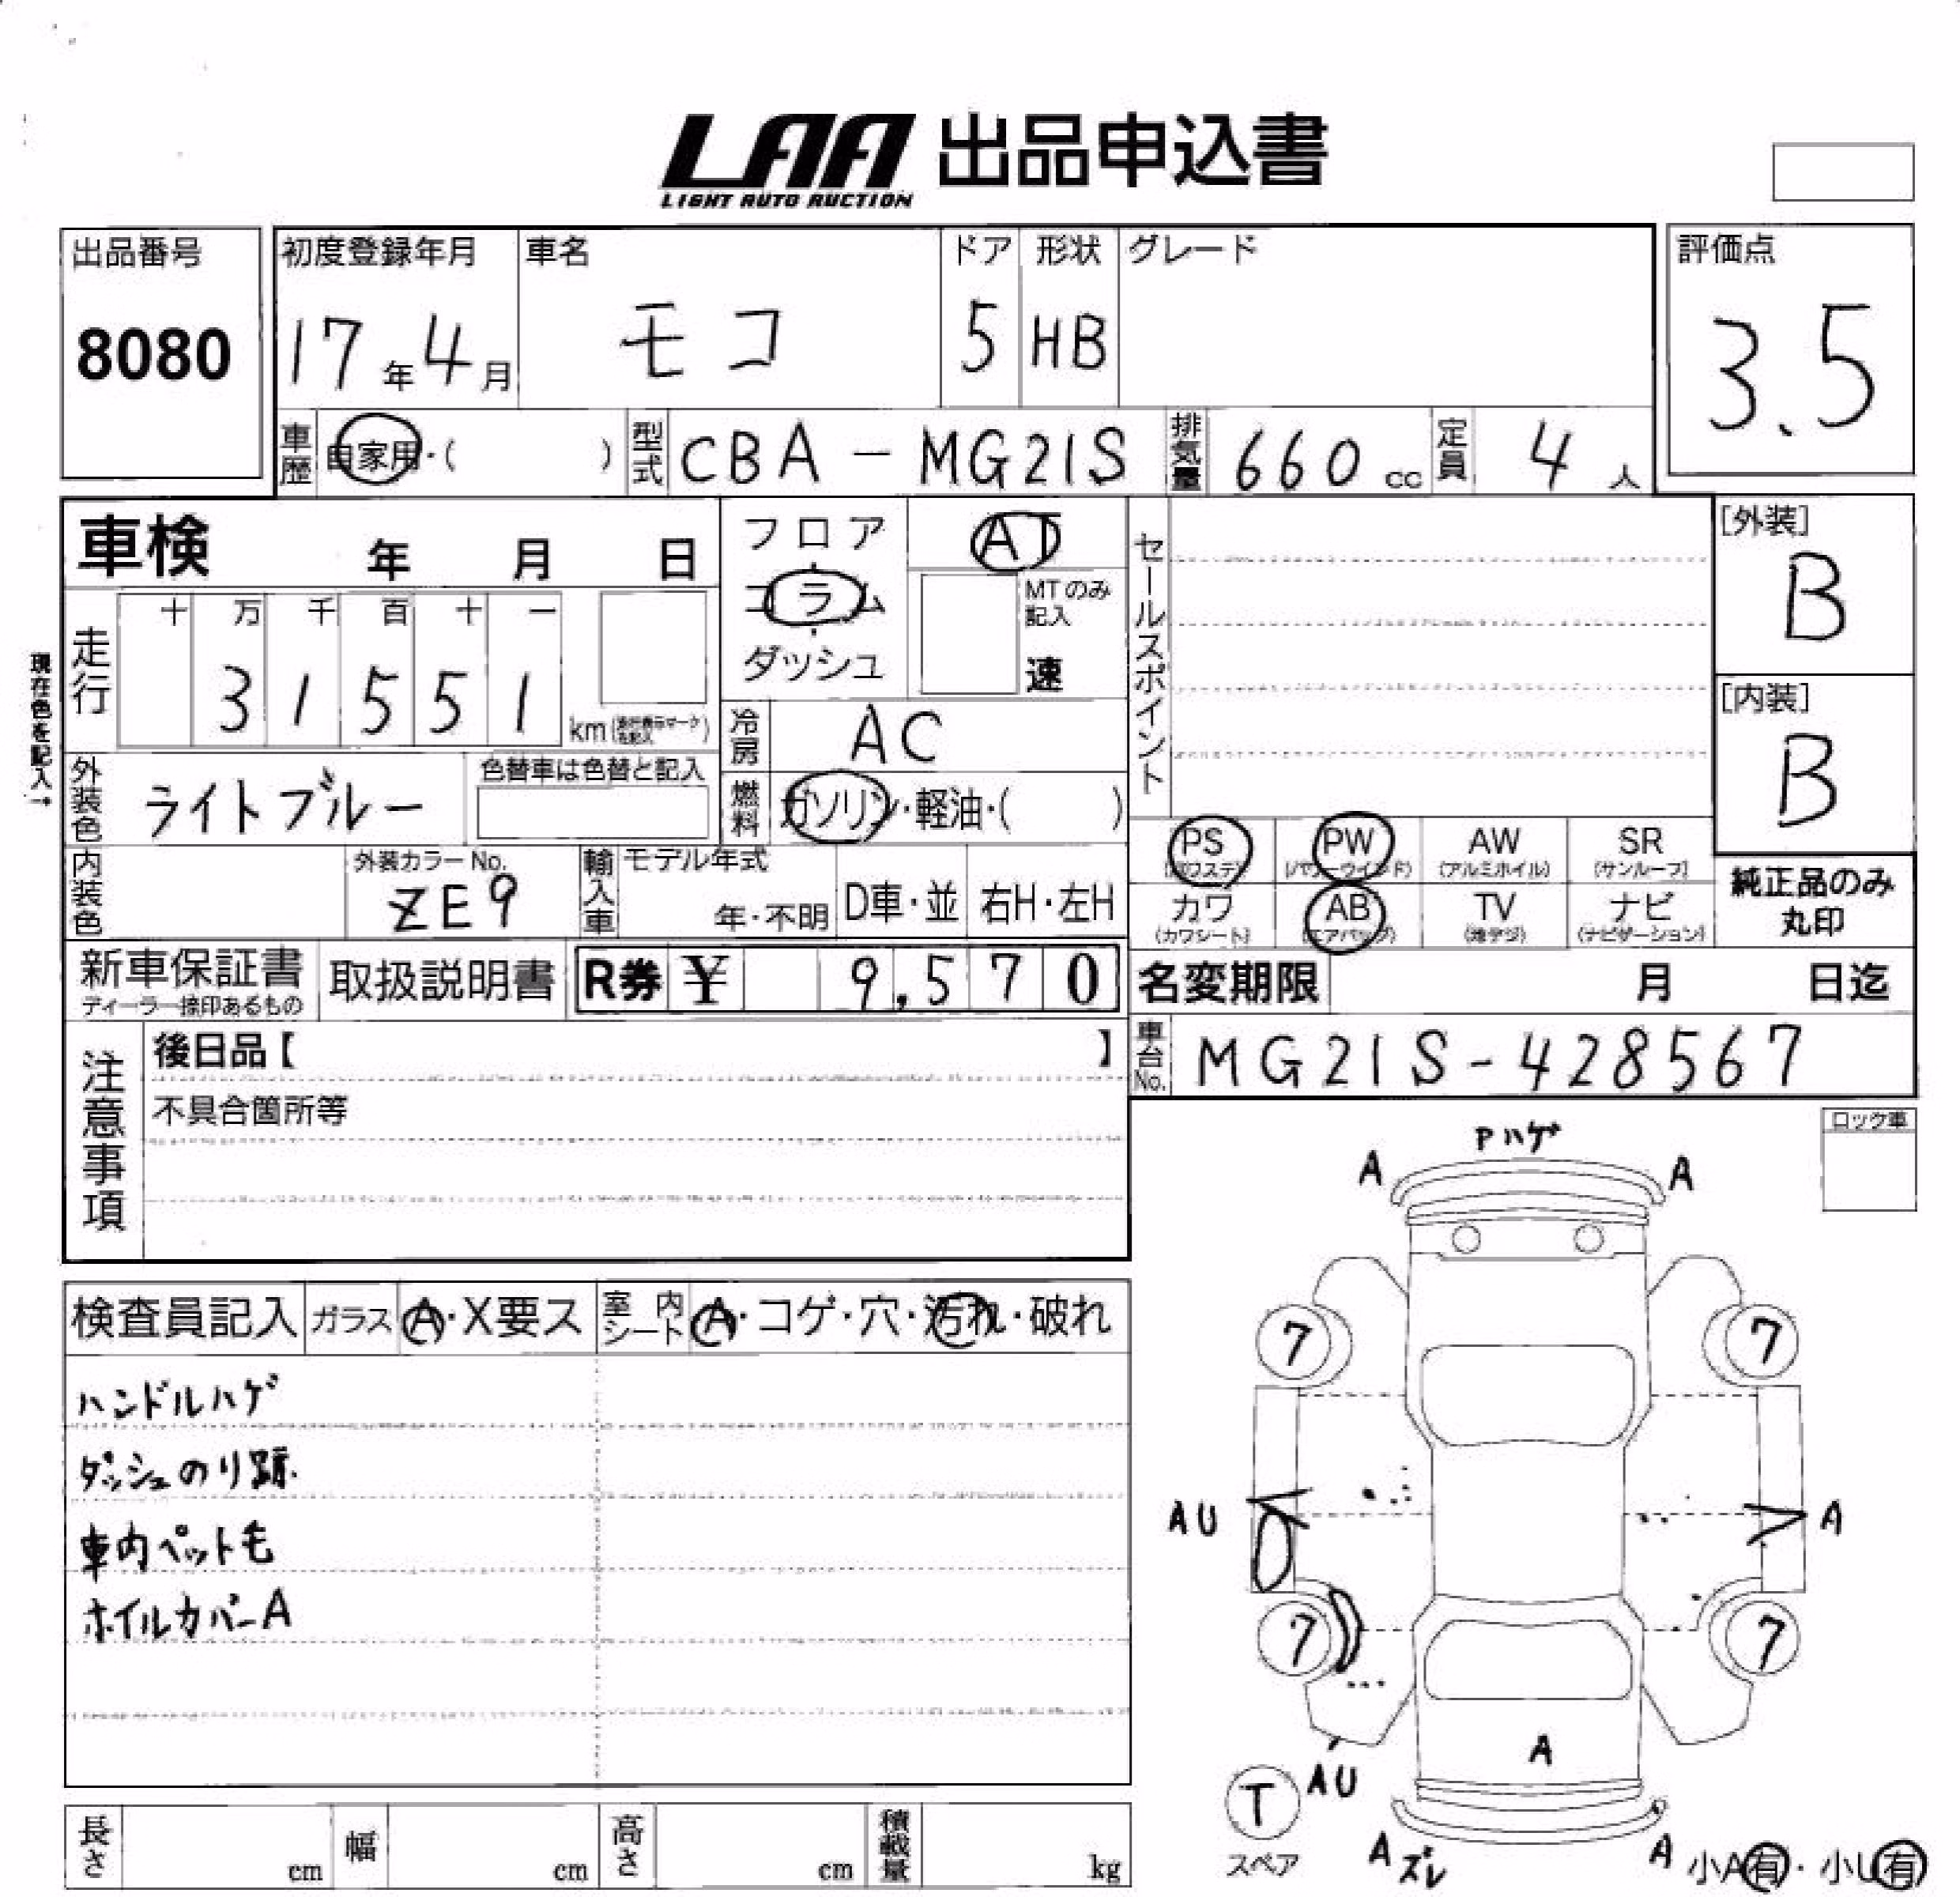 LAA 出品申込書
LIGHT AUTO AUCTION
出品番号
8080
初度登録年月 車名 ドア 形状 グレード
17年4月 モコ 5 HB
評価点
3.5
車歴 自家用・( ) 型式 CBA-MG21S 排気量 660cc 定員 4人
車検 年 月 日
フロア・コラム・ダッシュ
AT
MTのみ記入
速
セールスポイント
[外装]
B
[内装]
B
現在色を記入→
走行 十 万 千 百 十 一
31551
km(走行表示マークを記入)
冷房 AC
外装色 ライトブルー 色替車は色替と記入
燃料 ガソリン・軽油・( )
内装色 外装カラーNo.
ZE9
輸入車 モデル年式
年・不明 D車・並 右H・左H
PS (パワステ) PW (パワーウインド) AW (アルミホイル) SR (サンルーフ)
カワ (カワシート) AB (エアバッグ) TV (地デジ) ナビ (ナビゲーション)
純正品のみ
丸印
新車保証書
ディーラー捺印あるもの
取扱説明書 R券 ¥ 9,570
名変期限 月 日迄
車台No. MG21S-428567
注意事項
後日品【 】
不具合箇所等
ロック車
検査員記入 ガラス A・X要ス 室内シート A・コゲ・穴・汚れ・破れ
ハンドルハゲ
ダッシュのり跡.
車内ペット毛
ホイルカバーA
Pハゲ
A A
7 7
AU A
7 7
A
AU
T
スペア
A ズレ A
小A有・小U有
長さ cm 幅 cm 高さ cm 積載量 kg